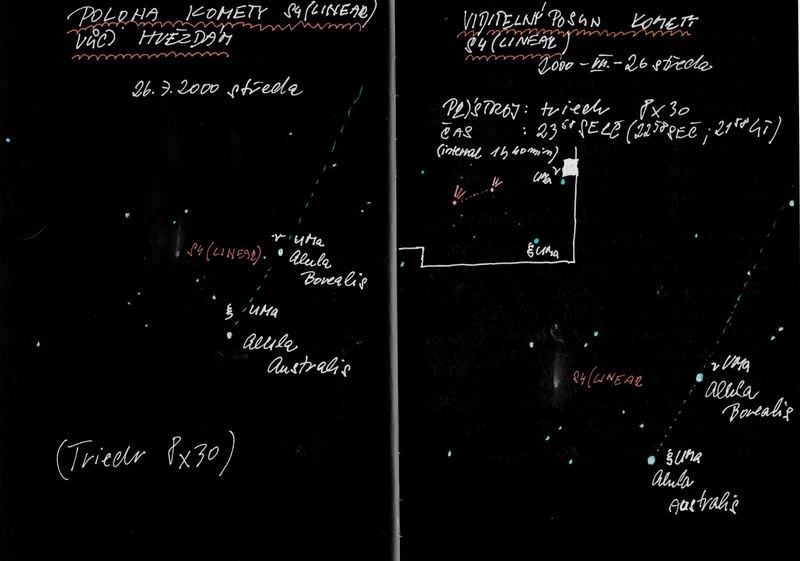 POLOHA KOMETY S4 (LINEAR)
VŮČI HVĚZDÁM
26.7.2000 středa
S4 (LINEAR)
ν UMa
Alula
Borealis
ξ UMa
Alula
Australis
(Triedr 8x30)
VIDITELNÝ POSUN KOMETY
S4 (LINEAR)
2000-VII.-26 středa
PŘÍSTROJ: triedr 8x30
ČAS : 23⁵⁸ SELČ (22⁵⁸ SEČ; 21⁵⁸ UT)
(interval 1h 40min)
ν
UMa
ξ UMa
S4 (LINEAR
ν UMa
Alula
Borealis
ξ UMa
Alula
Australis